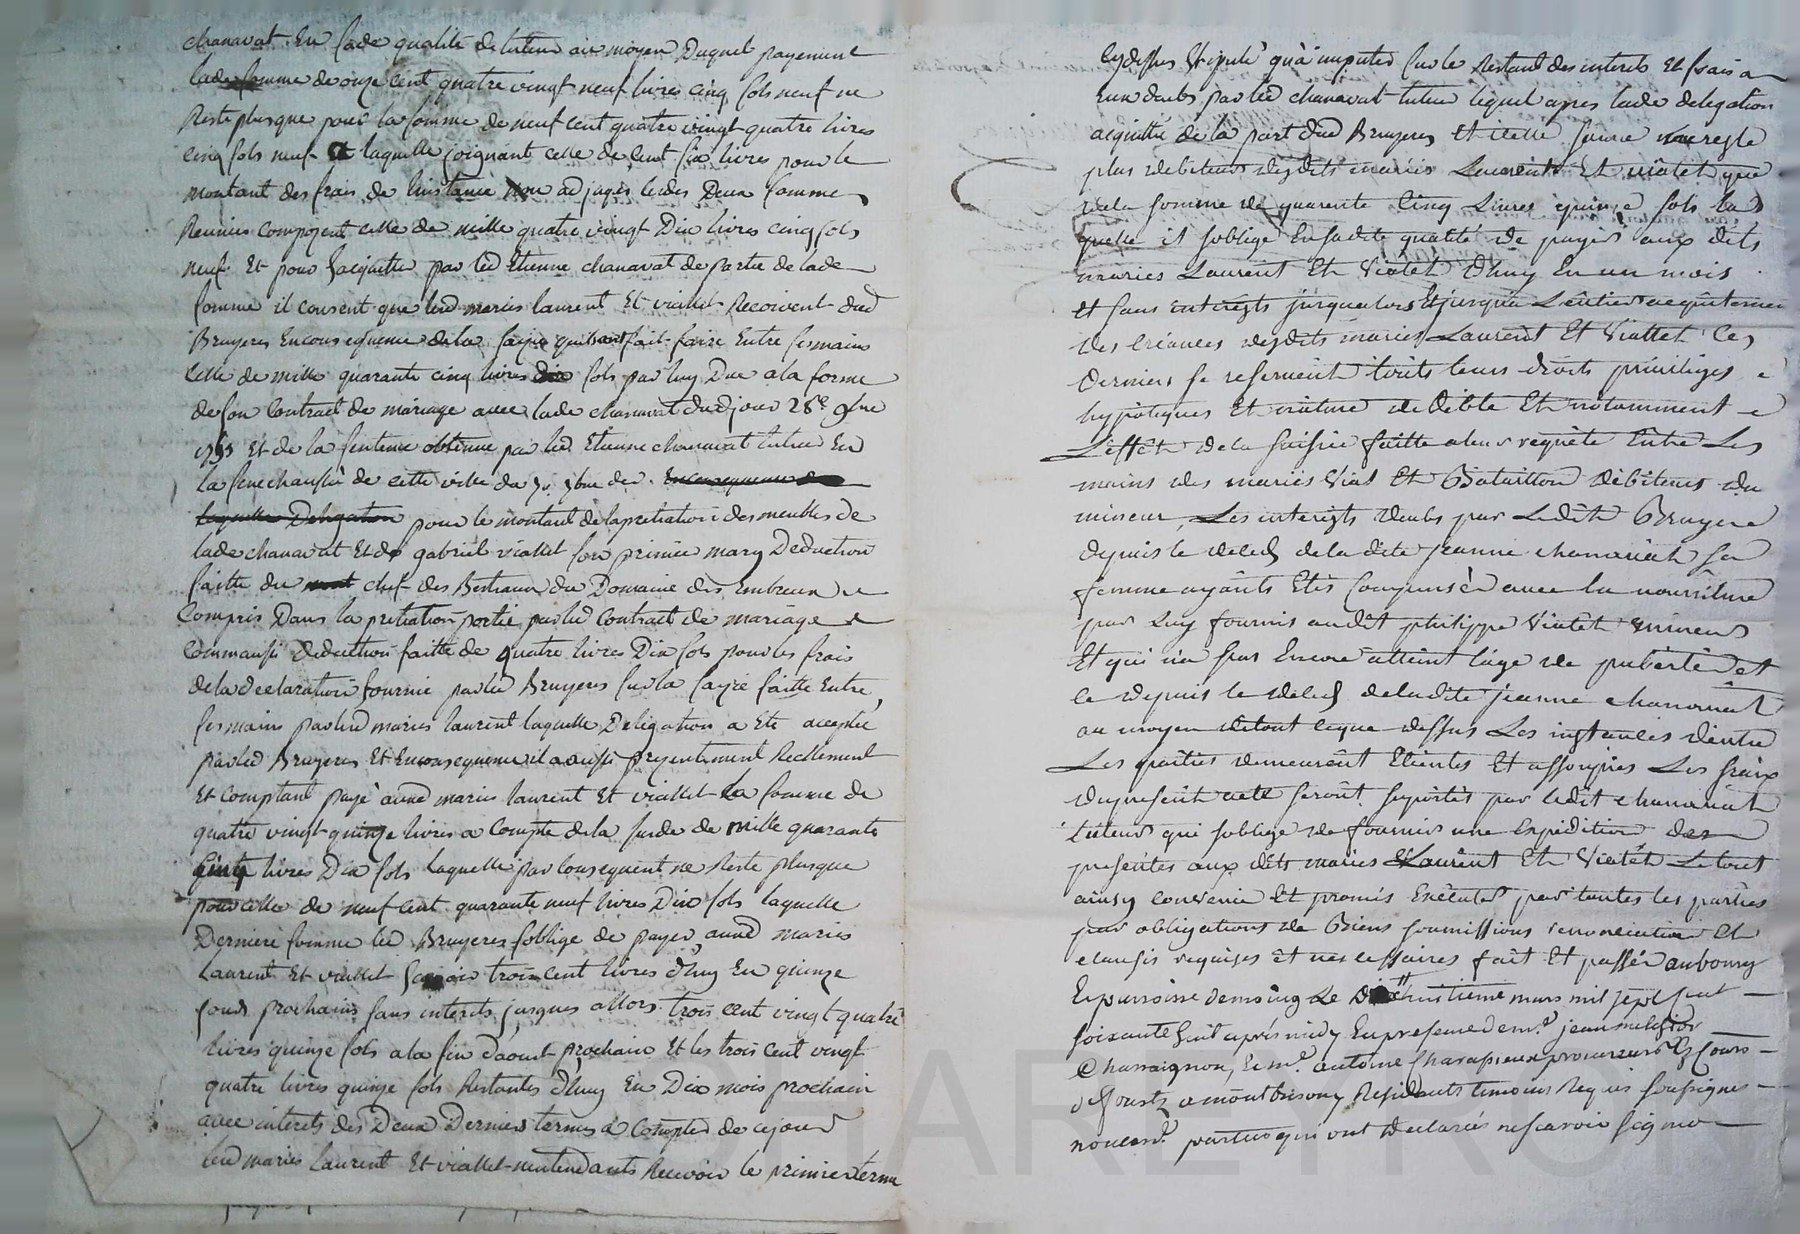 chanavat. En lade qualité de tuteur au moyen Duquel payement
lade somme de onze cent quatre vingt neuf livres cinq sols neuf ne
Reste plusque pour la somme de neuf cent quatre vingt quatre livres
cinq sols neuf a laquelle joignant celle de cent six livres pour le
montant des frais de linstance adjugés lesdes Deux sommes
Reunies composent celle de mille quatre vingt Dix livres cinq sols
neuf. Et pour sacquitter par led Etienne chanavat de partie de lade
somme il consent que led maries laurent Et viallet Recoivent dud
Bruyeres En consequence dela saizie quils ont fait faire Entre ses mains
celle de mille quarante cinq livres dix sols par luy Due a la forme
de son contract de mariage avec lade chanavat dud jour 28e 9bre
1755 Et de la sentence obtenue par led Etienne chanavat tuteur En
la senechaussée de cette ville du 30 7bre der. En consequence de
laquelle Delegation pour le montant de la pretiation des meubles de
lade chanavat Et de gabriel viallet son premier mary Deduction
faitte du chef des Bestiaux du Domaine des Embreux
compris Dans la pretiation portée par led contract de mariage
comm'aussi deduction faitte de quatre livres Dix sols pour les frais
de la declaration fournie par led Bruyeres sur la sayzie faitte Entre
ses mains par led maries laurent laquelle Delegation a eté acceptée
par led Bruyeres Et En consequence il a aussi presentement Reellement
Et comptant payé aux maries laurent Et viallet La somme de
quatre vingt quinze livres a compte de la susde de mille quarante
cinq livres Dix sols laquelle par consequent ne Reste plusque
pour celle de neuf cent quarante neuf livres Dix sols laquelle
Derniere somme led Bruyeres soblige de payer auxd maries
Laurent Et viallet scavoir trois cent livres d'huy En quinze
jours prochains sans interets jusques allors trois cent vingt quatre
livres quinze sols a la fin d'aoust prochain Et les trois cent vingt
quatre livres quinze sols Restantes d'huy En Dix mois prochain
avec interets des Deux Derniers termes a Compter de ce jour
led maries Laurent Et viallet n'entendants Recevoir le premier terme
cy dessus stipulé qu'a imputer sur le Restant des interets Et frais a
Eux deubs par led chanavat tuteur lequel apres lade delegation
acquittée de la part dud Bruyeres Et icelle suivie ne reste
plus debiteur desdits mariés Laurent Et viâlet que
de la somme de quarente Cinq Livres quinze sols la
quelle il soblige En sadite qualité de payer aux dits
mariés Laurent Et Vialet d'huy En un mois
et sans interests jusqu'alors Et jusqu'a L'entier acquitement
des Créances desdits mariés Laurent Et Viallet Ces
Derniers se reservent touts leurs droits privileges
hypoteques Et nature de debte Et notamment
L'effet de la saisie faitte a leur requête Entre Les
mains des mariés Vial Et Bataillon debiteurs du
mineur, Les interests deubs par Ledit Bruyere
depuis le deceds de ladite jeanne chanavat sa
femme ayants Etés Compensés avec la nourriture
par Luy fournis audit philippe Vialet mineur
Et qui n'a pas Encore atteint l'age de puberté et
ce depuis le deceds de ladite jeanne chanavat
au moyen de tout ceque dessus Les instances d'entre
Les parties demeurent Eteintes Et assoupies Les fraix
du present acte seront suportés par ledit chanavat
tuteur qui soblige de fournir une Expedition des
presentes aux dits mariés Laurent Et Vialet Le tout
ainsy convenu Et promis Executer par toutes les parties
par obligations de Biens soumissions renonciation Et
clauses requises et necessaires fait Et passé au bourg
Et parroisse de moing Le Dixhuitieme mars mil sept cent
soixante huit après midy En presence de mr. jean melchior
Chassaignon, Et mr. antoine Charassieux procureurs Es Cours
de foretz a montbrison y Residents temoins Requis soussignés
non les parties qui ont declarés ne scavoir signer